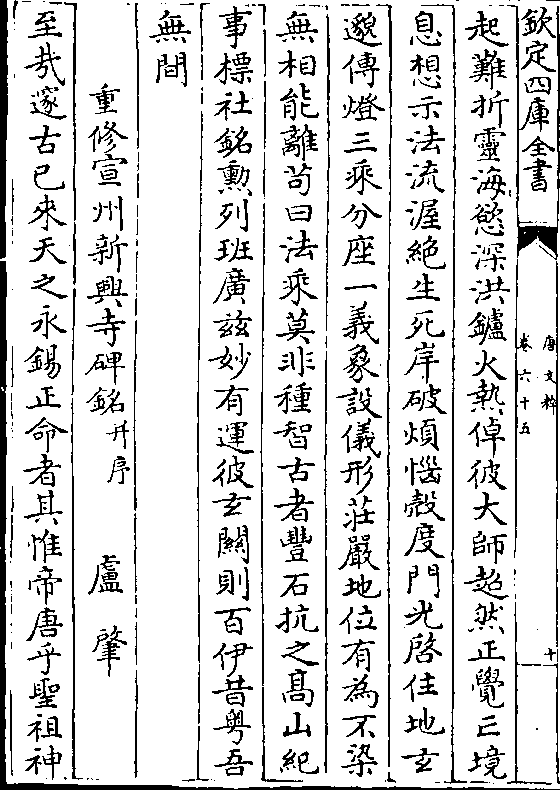 欽定四庫全書
唐文粹
卷六十五
十
起難折靈海慾深洪鑪火熱倬彼大師超然正覺亡境
息想示法流渥絶生死岸破煩惱殻度門光啓住地玄
邈傳燈三乘分座一義象設儀形莊嚴地位有為不染
無相能離苟曰法乘莫非種智古者豐石抗之髙山紀
事標社銘勲列班廣兹妙有運彼玄闗則百伊昔粤吾
無間
重修宣州新興寺碑銘并序 盧肇
至哉邃古已來天之永錫正命者其惟帝唐乎聖祖神